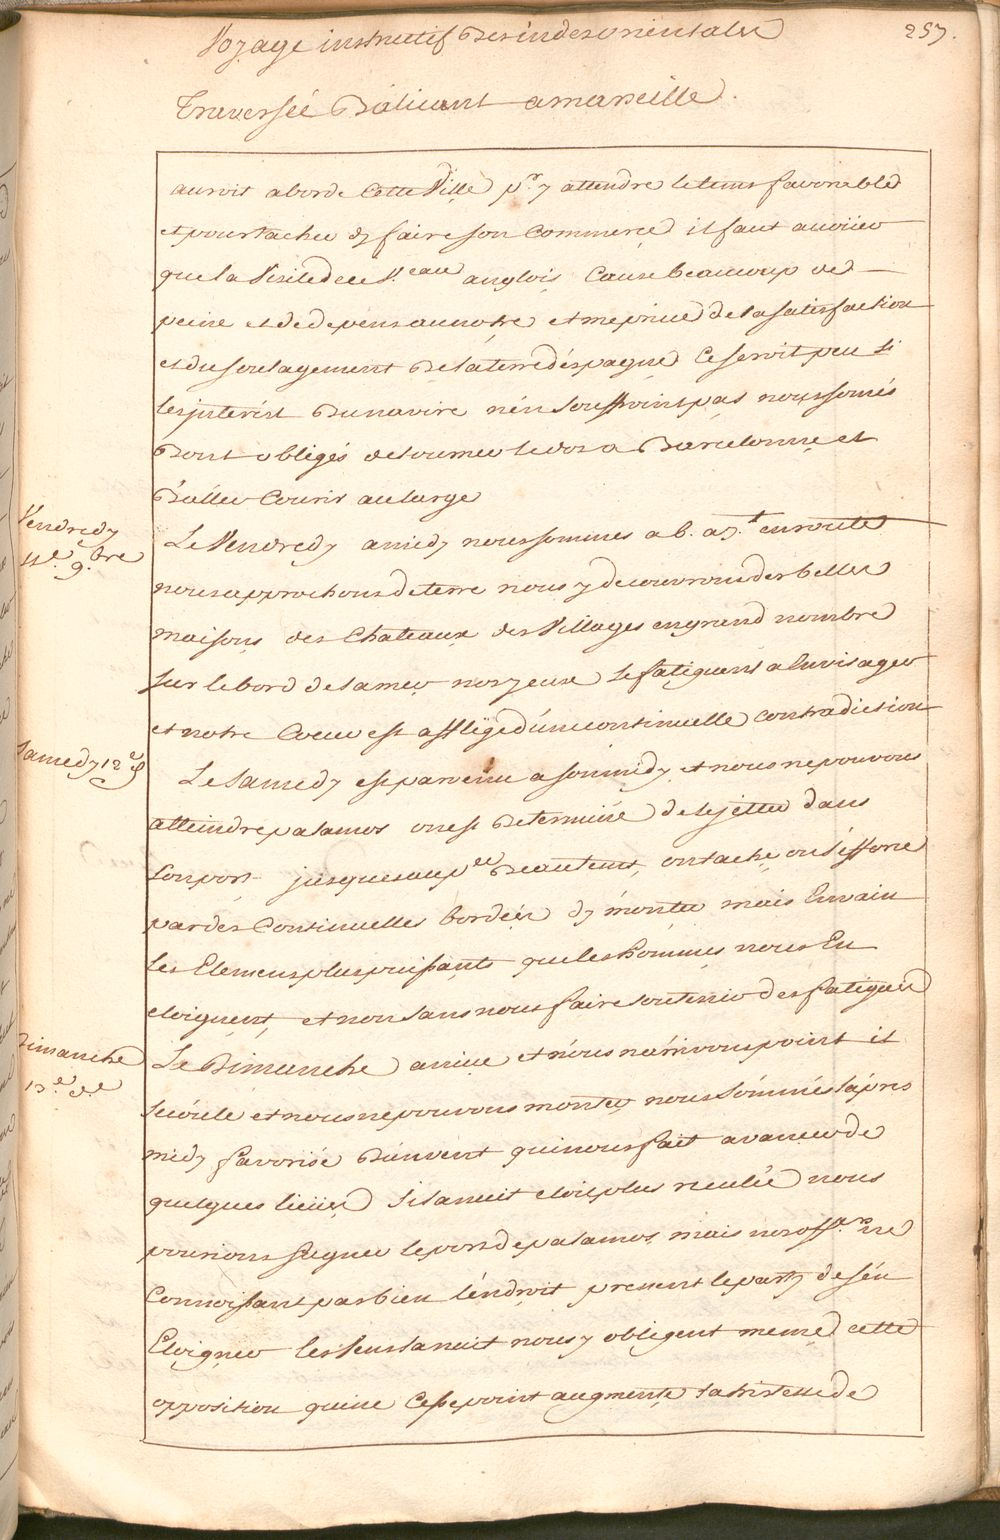 Voyage instructif Des indes orientales
257.
Traversée D'alicant a marseille.
auroit abordé Cette Ville pr. y attendre le tems favorable
et pour tacher dy faire son Commerce il faut avoüer
que la Visite de ce V.eau anglois Cause beaucoup de
peine et de depens au notre et me prive de la satisfaction
et du soulagement De la terre d'éspagne Ce seroit peu si
les jnterést Du navire n'én souffroint pas nous somés
Dont obligés de tourner le dos a Barcelonne et
D'aller Courir au large
Vendredy
11.e 9.bre
Le Vendredy a midy nous sommes a b. a 7.t en route
nous approchons de terre nous y decouvrons des belles
maisons des Chateaux des Villages en grand nombre
sur le bord de la mer nos yeux se fatiguent a l'envisager
et notre Coeur est affligé d'úne continuelle contradiction
Samedy 12.e d.
Le Samedy est parvenu a son midy et nous ne pouvons
atteindre palamos on est Determiné de se jetter dans
son port jusques au per. Beau tems, on tache, on s'éfforce
par des Continuelles bordées dy monter mais En vain
les Elemens plus puissants que les hommes nous En
eloignent, et non sans nous faire soutenir des fatigues
Dimanche
13.e d.e
Le Dimanche arrive et nóus n'arrivons point il
s'ecóule et nous ne pouvons monter nous sómmés l'apres
midy favorisé D'ún vent qui nous fait avancer de
quelques lieües si la nuit etoit plus reculée nous
pourrions gagner le port de palamos mais nos off.rs ne
Connoissant pas bien l'éndroit prenent le party de s'én
Eloigner les vens la nuit nous y obligent meme cette
opposition qui ne Cesse point augmente la tristesse de